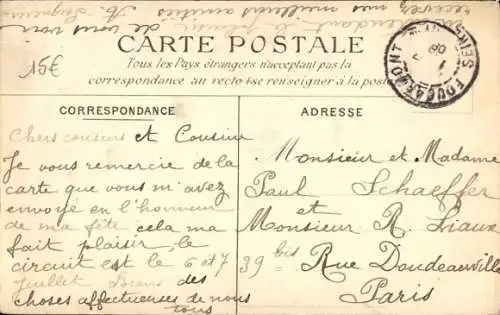 recevez mes meilleurs amitiés
en attendant le plaisir de vous voir
15€
CARTE POSTALE
Tous les Pays étrangers n'acceptant pas la
correspondance au recto (se renseigner à la poste
CORRESPONDANCE
Chers cousins et Cousine
Je vous remercie de la
carte que vous m'avez
envoyé en l'honneur
de ma fête, cela ma
fait plaisir, le
circuit est le 6 et 7
Juillet Biens des
choses affectueuses de nous
tous
ADRESSE
Monsieur et Madame
Paul Schaeffer
et
Monsieur R. Liaux
39 bis Rue Doudeauville
Paris
FOUCARMONT